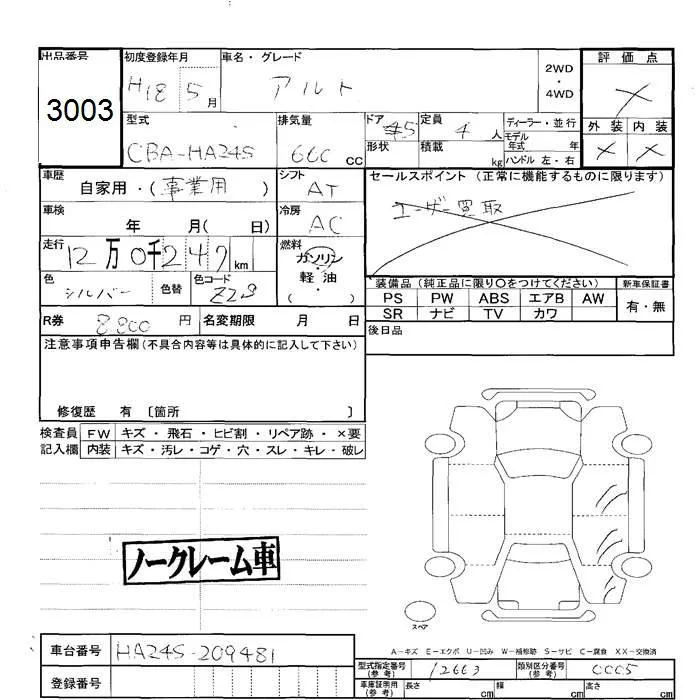 出品番号 初度登録年月 車名・グレード 2WD・4WD 評価点
3003 H18 5月 アルト ×
型式 排気量 ドア 定員 ディーラー・並行 外装 内装
CBA-HA24S 660 CC 5 4人 モデル年式 年 × ×
形状 積載 kg ハンドル 左・右
車歴 自家用・(事業用) シフト AT セールスポイント (正常に機能するものに限ります)
車検 年 月( 日) 冷房 AC ユーザー買取
走行 12万0千247km 燃料 ガソリン 軽・油 ( )
色 シルバー 色替 色コード Z2S 装備品(純正品に限り○をつけてください) 新車保証書
PS PW ABS エアB AW 有・無
SR ナビ TV カワ
R券 8,800円 名変期限 月 日 後日品
注意事項申告欄(不具合内容等は具体的に記入して下さい)
修復歴 有 〔箇所 〕
検査員 FW キズ・飛石・ヒビ割・リペア跡・×要
記入欄 内装 キズ・汚レ・コゲ・穴・スレ・キレ・破レ
ノークレーム車
スペア
A-キズ E-エクボ U-凹み W-補修跡 S-サビ C-腐食 XX-交換済
車台番号 HA24S-209481 型式指定番号(参考) 12663 類別区分番号(参考) 0005
登録番号 車庫証明用(参考) 長さ cm 幅 cm 高さ cm